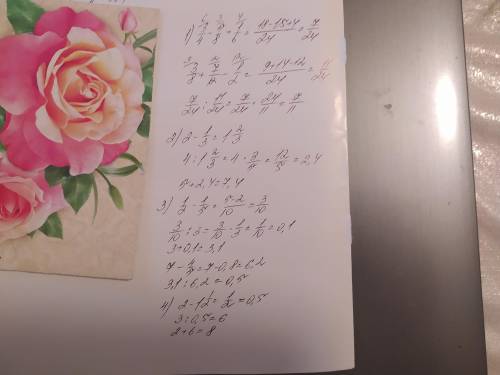 1) 3/4 - 5/8 + 1/6 = (18-15+4)/24 = 7/24
3/8 + 7/12 - 1/2 = (9+14-12)/24 = 11/24
7/24 : 11/24 = 7/24 · 24/11 = 7/11
2) 2 - 1/3 = 1 2/3
4 : 1 2/3 = 4 · 3/5 = 12/5 = 2,4
5+2,4=7,4
3) 1/2 - 1/5 = (5-2)/10 = 3/10
3/10 : 3 = 3/10 · 1/3 = 1/10 = 0,1
3+0,1=3,1
7 - 4/5 = 7-0,8=6,2
3,1:6,2=0,5
4) 2 - 1 1/2 = 1/2 = 0,5
3:0,5=6
2+6=8